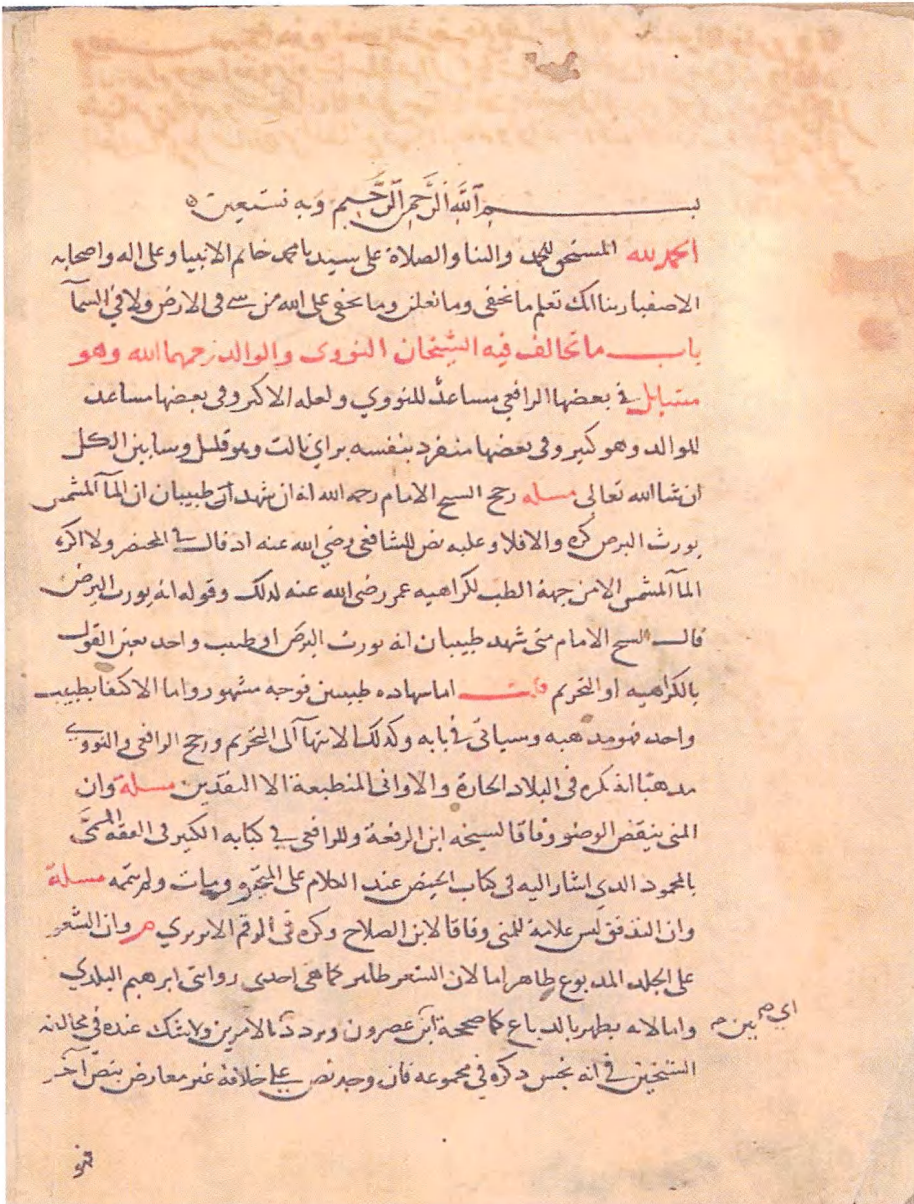 بسم الله الرحمن الرحيم وبه نستعين
الحمد لله المستحق للحمد والثنا والصلاة على سيدنا محمد خاتم الانبيا وعلى اله واصحابه
الاصفيا ربنا انك تعلم ما نخفى وما نعلن وما يخفى على الله من سى فى الارض ولا فى السمآ
باب ما تخالف فيه الشيخان النووى والوالد رحمهما الله وهو
مسايل فى بعضها الرافعي مساعد للنووي ولعله الاكثر وفى بعضها مساعد
للوالد وهو كثير وفى بعضها منفرد بنفسه براي ثالث وهو قليل وسابين الكل
ان شا الله تعالى مسله رجح الشيخ الامام رحمه الله انه ان شهد طبيبان ان المآ المشمس
يورث البرص كره والا فلا وعليه نص للشافعى رضي الله عنه اذ قال فى المختصر ولا اكره
المآ المشمس الا من جهة الطب لكراهيه عمر رضى الله عنه لذلك وقوله انه يورث البرص
قال الشيخ الامام متى شهد طبيبان انه يورث البرص او طبيب واحد تعين القول
بالكراهيه او التحريم قلت اما شهاده طبيبين فوجه مشهور واما الاكتفا بطبيب
واحد فهو مذهبه وسياتى فى بابه وكذلك الانتهآ الى التحريم ورجح الرافعى والنووي
مذهبا انه كره فى البلاد الحارة والاوانى المنطبعة الا النقدين مسلة وان
المنى ينقض الوضو وفاقا لشيخه ابن الرفعة وللرافعى فى كتابه الكبير فى الفقه المسمى
بالمحمود الذى اشار اليه فى كتاب الحيض عند الكلام على المتحيره ومات ولم يتمه مسلة
وان التدفق ليس علامة للمنى وفاقا لابن الصلاح ذكره فى الرقم الابريزي م وان الشعر
على الجلد المدبوغ طاهر اما لان الشعر طاهر كما هى احدى روايتى ابرهيم البلدي
واما لانه يطهر بالدباغ كما صححه ابن عصرون وتردد الامرين ولا شك عنده فى مخالفة
الشيخين فى انه نجس ذكره فى مجموعه فان وجد نص على خلافه غير معارض بنص آخر